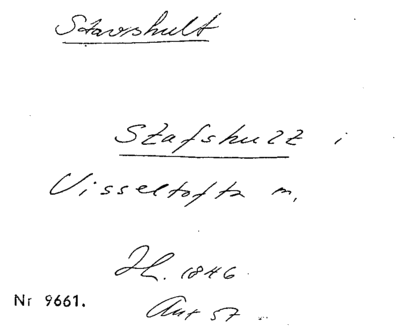 Stavshult
Stafshult i
Visseltofta m,
Jh. 1846
Nr 9661.
Ant 57